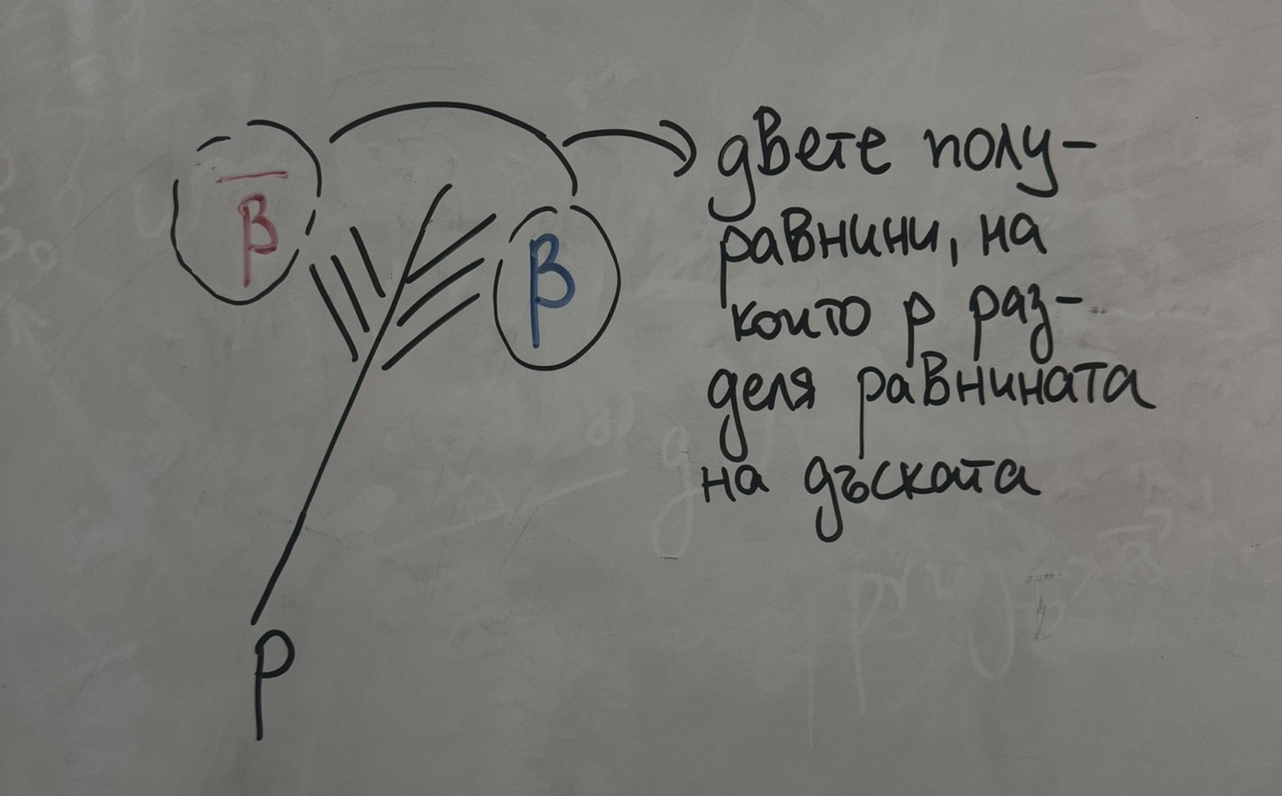 β̅
β
двете полу-
равнини, на
които p раз-
деля равнината
на дъската
p